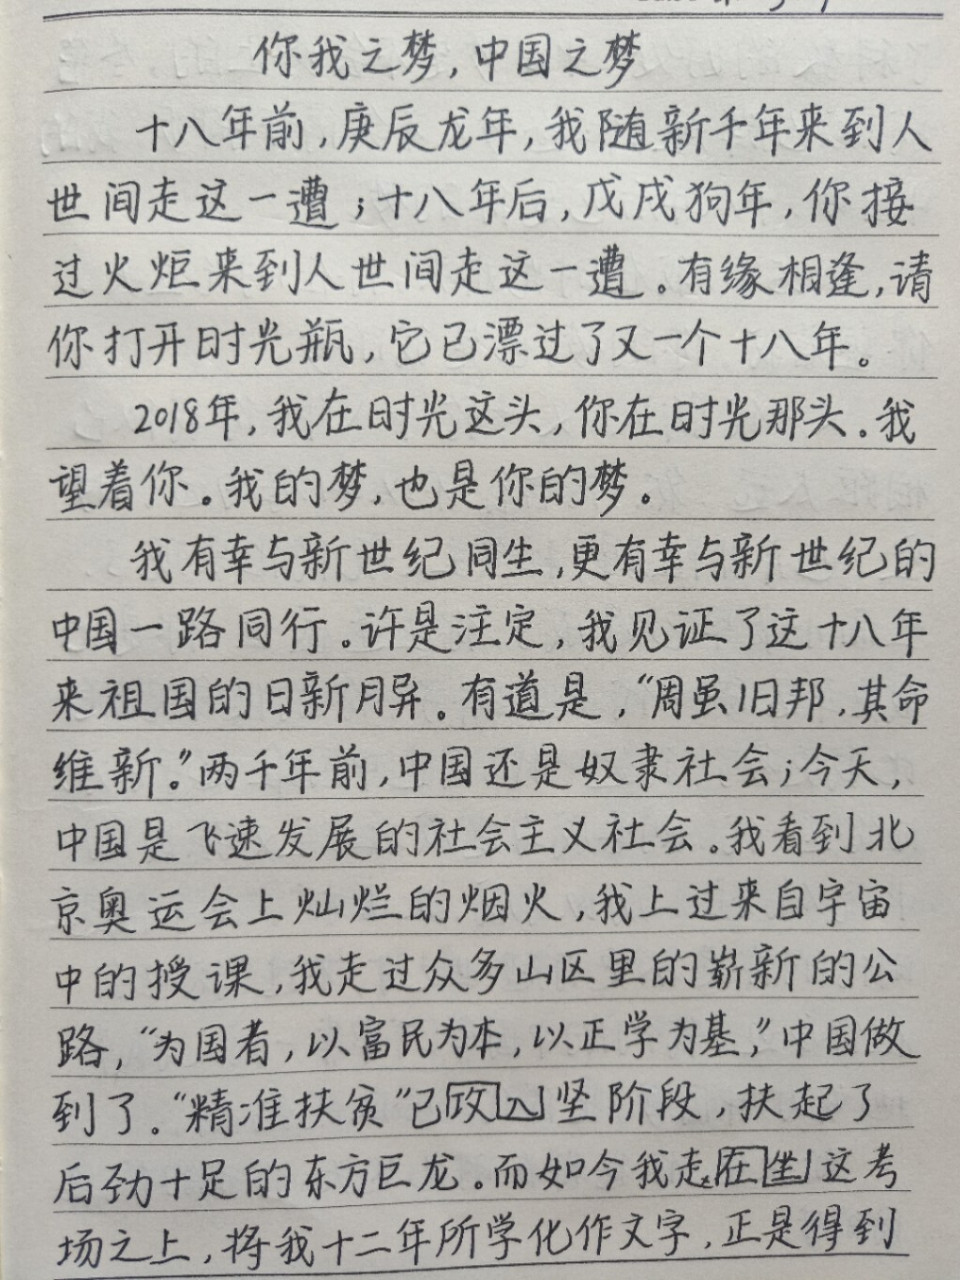 你我之梦,中国之梦
十八年前,庚辰龙年,我随新千年来到人
世间走这一遭;十八年后,戊戌狗年,你接
过火炬来到人世间走这一遭。有缘相逢,请
你打开时光瓶,它已漂过了又一个十八年。
2018年,我在时光这头,你在时光那头。我
望着你。我的梦,也是你的梦。
我有幸与新世纪同生,更有幸与新世纪的
中国一路同行。许是注定,我见证了这十八年
来祖国的日新月异。有道是,“周虽旧邦,其命
维新。”两千年前,中国还是奴隶社会;今天,
中国是飞速发展的社会主义社会。我看到北
京奥运会上灿烂的烟火,我上过来自宇宙
中的授课,我走过众多山区里的崭新的公
路,“为国者,以富民为本,以正学为基,”中国做
到了。“精准扶贫”已攻入坚阶段,扶起了
后劲十足的东方巨龙。而如今我走在坐这考
场之上,将我十二年所学化作文字,正是得到